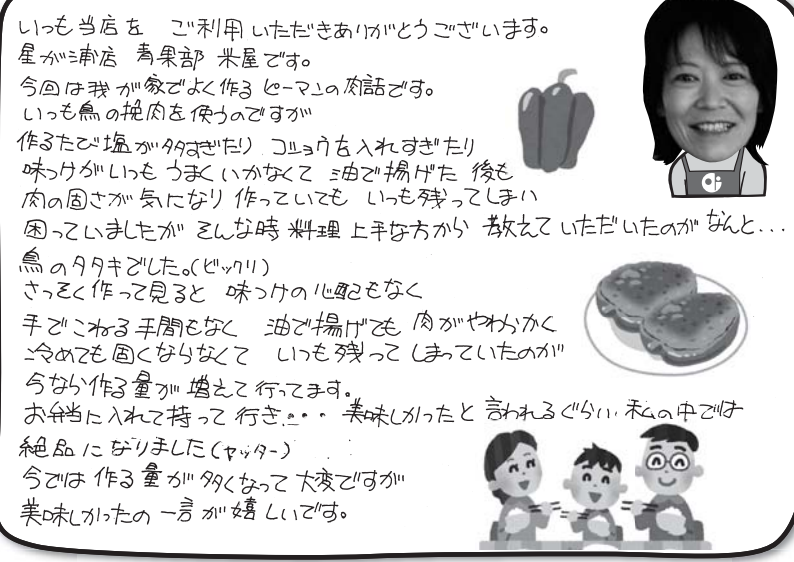 いつも当店を ご利用いただきありがとうございます。
星が浦店 青果部 米屋です。
今回は我が家でよく作るピーマンの肉詰です。
いつも鳥の挽肉を使うのですが
作るたび塩が多すぎたり コショウを入れすぎたり
味つけがいつもうまくいかなくて 油で揚げた後も
肉の固さが気になり作っていても いつも残ってしまい
困っていましたが そんな時料理上手な方から 教えていただいたのがなんと...
鳥のタタキでした。(ビックリ)
さっそく作って見ると 味つけの心配もなく
手でこねる手間もなく 油で揚げても肉がやわらかく
冷めても固くならなくて いつも残ってしまっていたのが
今なら作る量が増えて行ってます。
お弁当に入れて持って行き・・・美味しかったと言われるぐらい 私の中では
絶品になりました(ヤッター)
今では作る量が多くなって大変ですが
美味しかったの一言が嬉しいです。